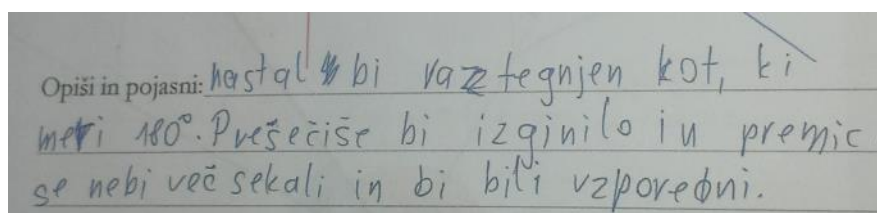 Opiši in pojasni: nastal bi raztegnjen kot, ki
meri 180°. Prešečiše bi izginilo in premic
se nebi več sekali in bi bili vzporedni.